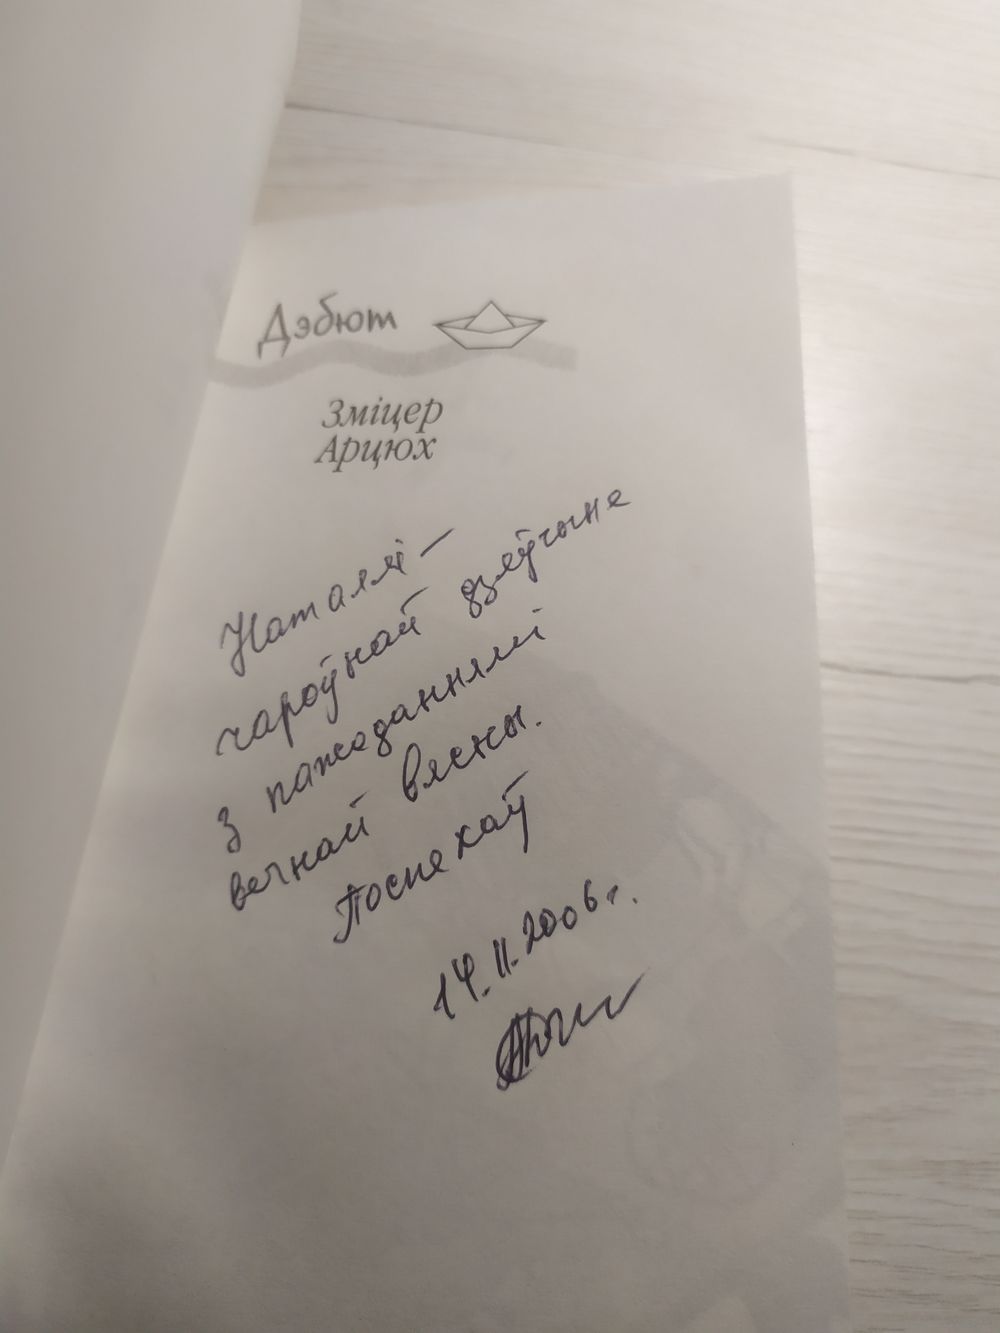 Дэбют
Зміцер
Арцюх
Наталлі –
чароўнай дзяўчыне
з пажаданнямі
вечнай вясны.
Поспехаў
14.II.2006 г.